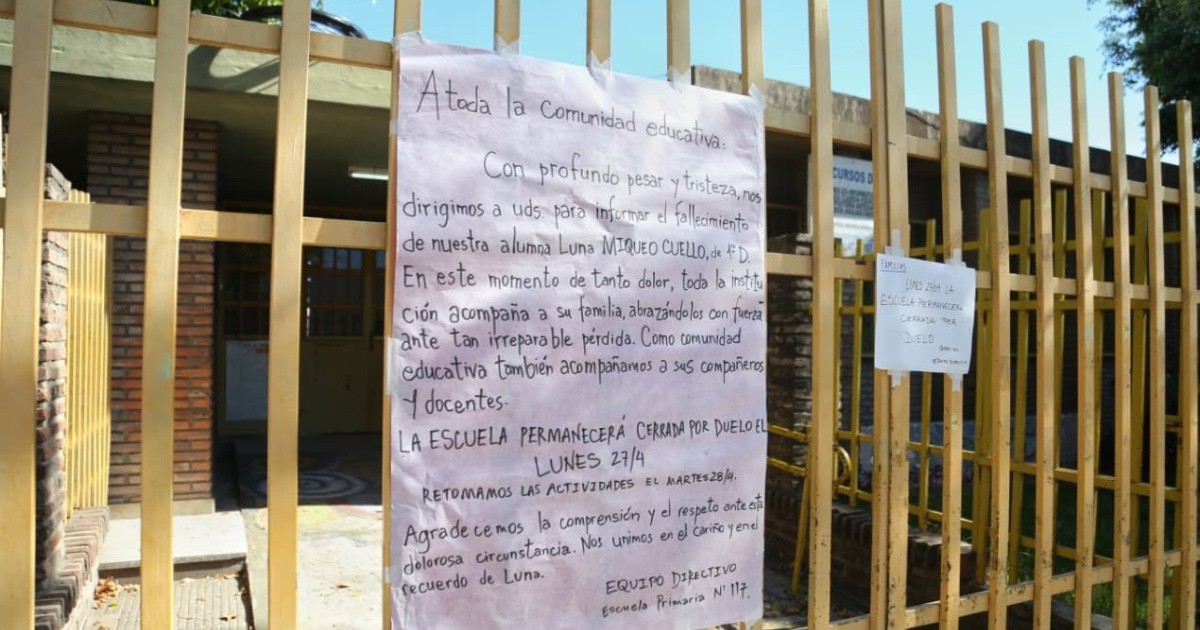 A toda la Comunidad educativa:
Con profundo pesar y tristeza, nos
dirigimos a uds. para informar el fallecimiento
de nuestra alumna Luna MIQUEO CUELLO, de 4° D.
En este momento de tanto dolor, toda la institu
ción acompaña a su familia, abrazándolos con fuerza
ante tan irreparable pérdida. Como comunidad
educativa también acompañamos a sus compañeros
y docentes.
LA ESCUELA PERMANECERÁ CERRADA POR DUELO EL
LUNES 27/4
RETOMAMOS LAS ACTIVIDADES EL MARTES 28/4.
Agradecemos la comprensión y el respeto ante esta
dolorosa circunstancia. Nos unimos en el cariño y en el
recuerdo de Luna.
EQUIPO DIRECTIVO
Escuela Primaria N° 117.
FAMILIAS
LUNES 27/04 LA
ESCUELA PERMANECERÁ
CERRADA POR
DUELO
CURSOS D